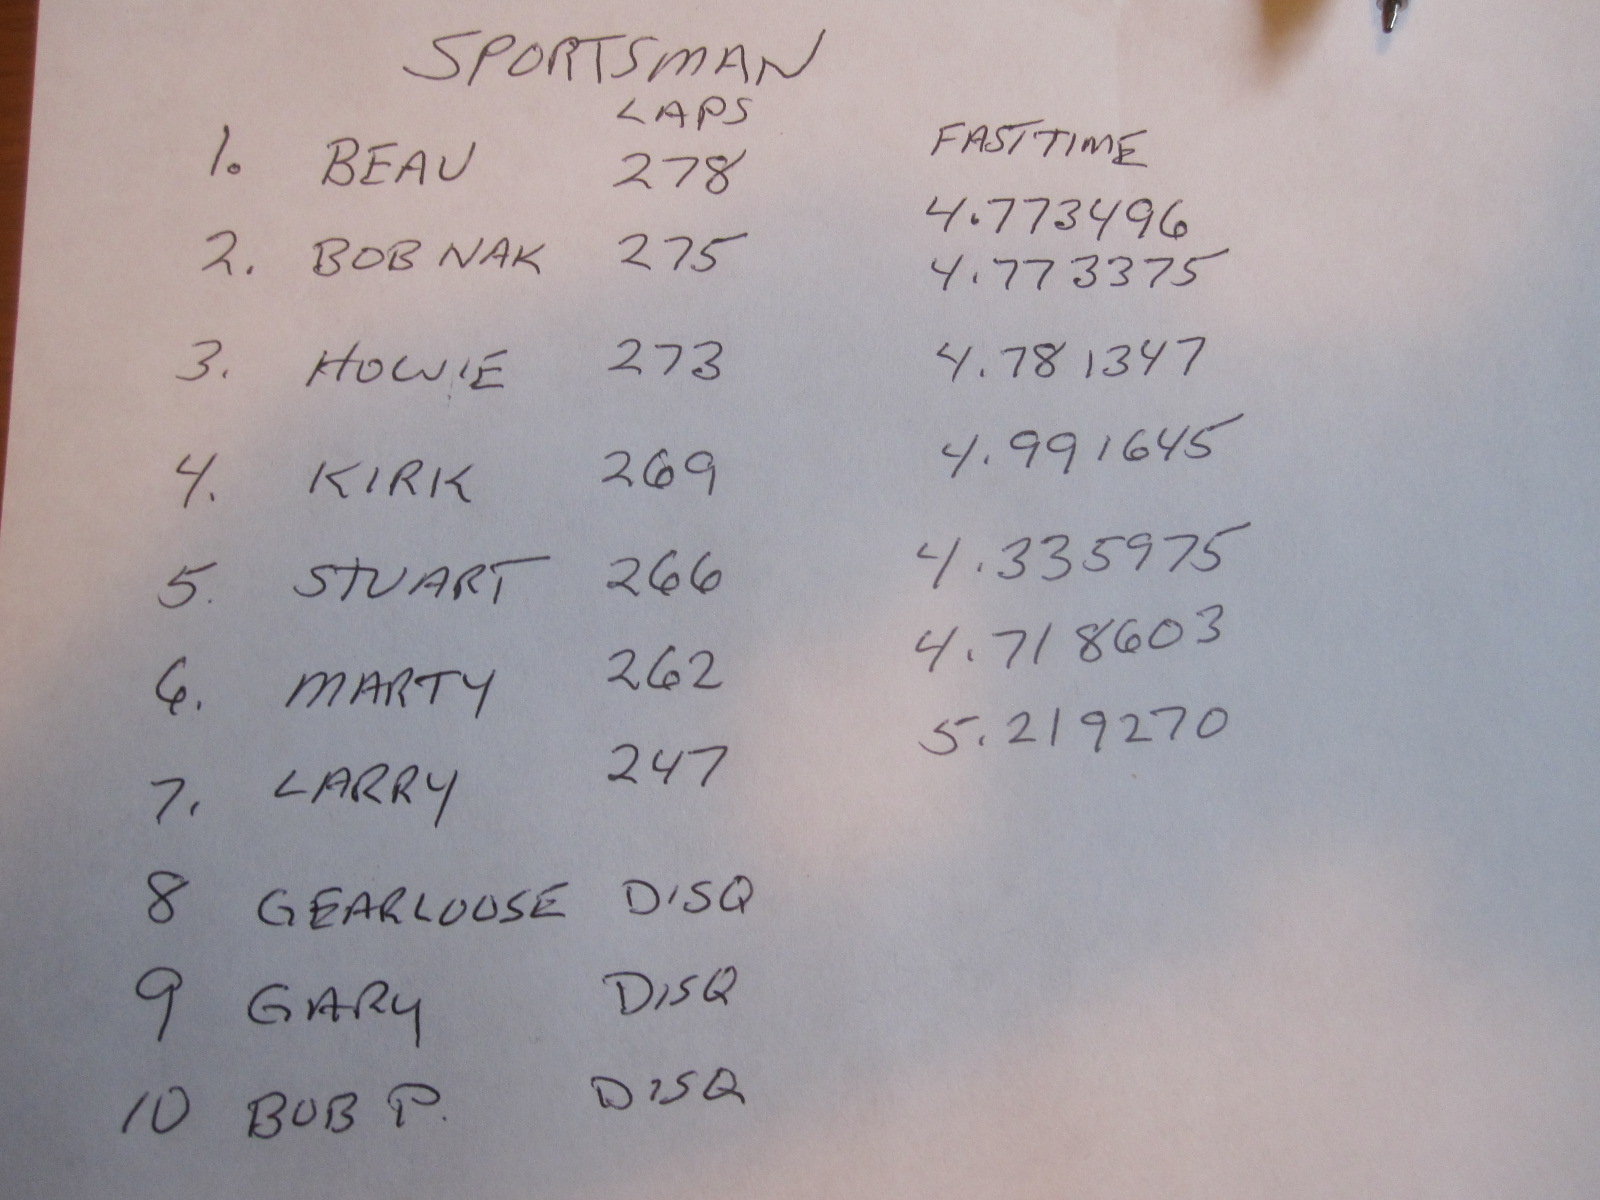 SPORTSMAN
LAPS FASTTIME
1. BEAU 278 4.773496
2. BOB NAK 275 4.773375
3. HOWIE 273 4.781347
4. KIRK 269 4.991645
5. STUART 266 4.335975
6. MARTY 262 4.718603
7. LARRY 247 5.219270
8 GEARLOOSE DISQ
9 GARY DISQ
10 BOB P. DISQ